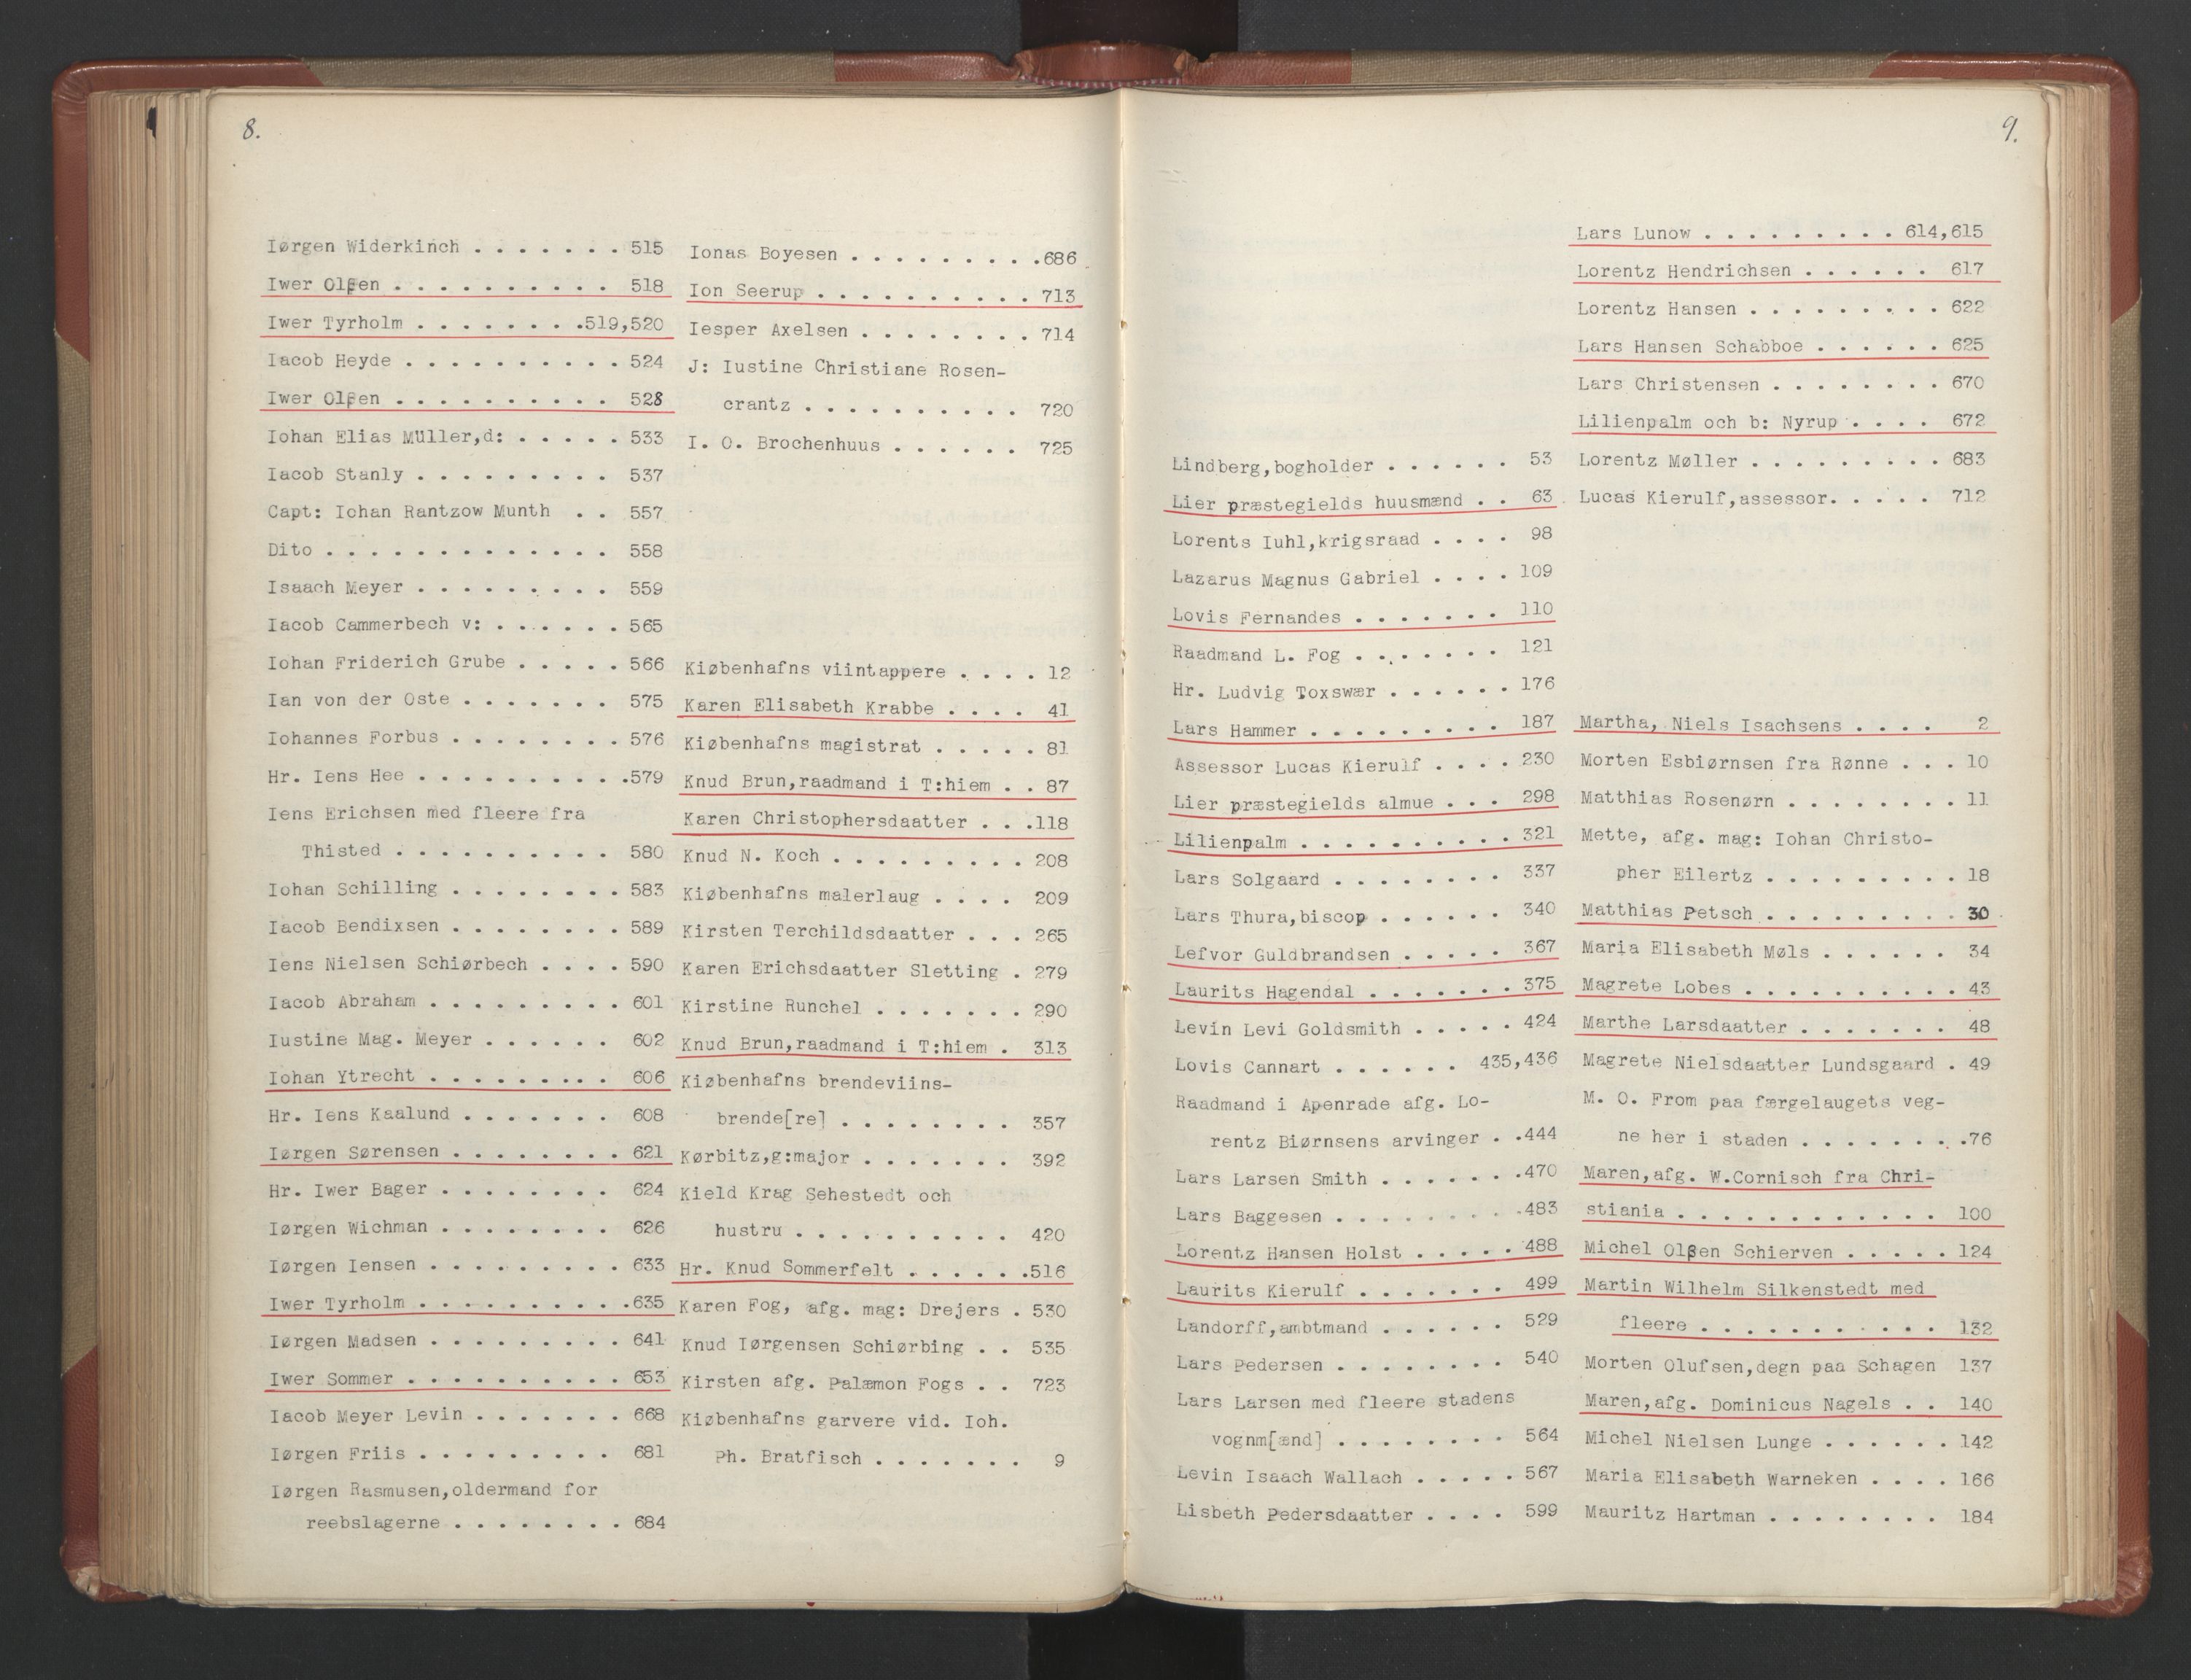 8.
Iørgen Widerkinch . . . . . . . 515
Iwer Olβen . . . . . . . . . . 518
Iwer Tyrholm . . . . . . . .519,520
Iacob Heyde . . . . . . . . . . 524
Iwer Olβen . . . . . . . . . . 528
Iohan Elias Müller,d: . . . . . 533
Iacob Stanly . . . . . . . . . 537
Capt: Iohan Rantzow Munth . . 557
Dito . . . . . . . . . . . . . 558
Isaach Meyer . . . . . . . . . 559
Iacob Cammerbech v: . . . . . . 565
Iohan Friderich Grube . . . . . 566
Ian von der Oste . . . . . . . 575
Iohannes Forbus . . . . . . . . 576
Hr. Iens Hee . . . . . . . . . .579
Iens Erichsen med fleere fra
Thisted . . . . . . . . . . 580
Iohan Schilling . . . . . . . . 583
Iacob Bendixsen . . . . . . . . 589
Iens Nielsen Schiørbech . . . . 590
Iacob Abraham . . . . . . . . . 601
Iustine Mag. Meyer . . . . . . 602
Iohan Ytrecht . . . . . . . . . 606
Hr. Iens Kaalund . . . . . . . 608
Iørgen Sørensen . . . . . . . . 621
Hr. Iwer Bager . . . . . . . . 624
Iørgen Wichman . . . . . . . . 626
Iørgen Iensen . . . . . . . . . 633
Iwer Tyrholm . . . . . . . . . .635
Iørgen Madsen . . . . . . . . . 641
Iwer Sommer . . . . . . . . . . 653
Iacob Meyer Levin . . . . . . . 668
Iørgen Friis . . . . . . . . . 681
Iørgen Rasmusen,oldermand for
reebslagerne . . . . . . . . 684
Ionas Boyesen . . . . . . . . .686
Ion Seerup . . . . . . . . . . 713
Iesper Axelsen . . . . . . . . 714
J: Iustine Christiane Rosen-
crantz . . . . . . . . . . 720
I. O. Brochenhuus . . . . . . 725
Kiøbenhafns viintappere . . . . 12
Karen Elisabeth Krabbe . . . . 41
Kiøbenhafns magistrat . . . . . 81
Knud Brun,raadmand i T:hiem . . 87
Karen Christophersdaatter . . .118
Knud N. Koch . . . . . . . . . 208
Kiøbenhafns malerlaug . . . . 209
Kirsten Terchildsdaatter . . . 265
Karen Erichsdaatter Sletting . 279
Kirstine Runchel . . . . . . . 290
Knud Brun,raadmand i T:hiem . 313
Kiøbenhafns brendeviins-
brende[re] . . . . . . . . 357
Kørbitz,g:major . . . . . . . 392
Kield Krag Sehestedt och
hustru . . . . . . . . . . 420
Hr. Knud Sommerfelt . . . . . .516
Karen Fog, afg. mag: Drejers . 530
Knud Iørgensen Schiørbing . . 535
Kirsten afg. Palæmon Fogs . . 723
Kiøbenhafns garvere vid. Ioh.
Ph. Bratfisch . . . . . . . 9
9.
Lindberg,bogholder . . . . . . 53
Lier præstegields huusmænd . . 63
Lorents Iuhl,krigsraad . . . . 98
Lazarus Magnus Gabriel . . . . 109
Lovis Fernandes . . . . . . . 110
Raadmand L. Fog . . . . . . . 121
Hr. Ludvig Toxswær . . . . . . 176
Lars Hammer . . . . . . . . . 187
Assessor Lucas Kierulf . . . . 230
Lier præstegields almue . . . 298
Lilienpalm . . . . . . . . . . 321
Lars Solgaard . . . . . . . . 337
Lars Thura,biscop . . . . . . 340
Lefvor Guldbrandsen . . . . . 367
Laurits Hagendal . . . . . . . 375
Levin Levi Goldsmith . . . . . 424
Lovis Cannart . . . . . . 435,436
Raadmand i Apenrade afg. Lo-
rentz Biørnsens arvinger . .444
Lars Larsen Smith . . . . . . .470
Lars Baggesen . . . . . . . . .483
Lorentz Hansen Holst . . . . . 488
Laurits Kierulf . . . . . . . 499
Landorff,ambtmand . . . . . . 529
Lars Pedersen . . . . . . . . 540
Lars Larsen med fleere stadens
vognm[ænd] . . . . . . . . 564
Levin Isaach Wallach . . . . . 567
Lisbeth Pedersdaatter . . . . 599
Lars Lunow . . . . . . . . . 614,615
Lorentz Hendrichsen . . . . . . 617
Lorentz Hansen . . . . . . . . . 622
Lars Hansen Schabboe . . . . . . 625
Lars Christensen . . . . . . . . 670
Lilienpalm och b: Nyrup . . . . 672
Lorentz Møller . . . . . . . . . 683
Lucas Kierulf,assessor. . . . . 712
Martha, Niels Isachsens . . . . 2
Morten Esbiørnsen fra Rønne . . . 10
Matthias Rosenørn . . . . . . . . 11
Mette, afg. mag: Iohan Christo-
pher Eilertz . . . . . . . . . 18
Matthias Petsch . . . . . . . . . 30
Maria Elisabeth Møls . . . . . . 34
Magrete Lobes . . . . . . . . . . 43
Marthe Larsdaatter . . . . . . . 48
Magrete Nielsdaatter Lundsgaard . 49
M. O. From paa færgelaugets veg-
ne her i staden . . . . . . . .76
Maren,afg. W.Cornisch fra Chri-
stiania . . . . . . . . . . . . 100
Michel Olβen Schierven . . . . . 124
Martin Wilhelm Silkenstedt med
fleere . . . . . . . . . . . 132
Morten Olufsen,degn paa Schagen 137
Maren,afg. Dominicus Nagels . . 140
Michel Nielsen Lunge . . . . . . 142
Maria Elisabeth Warneken . . . . 166
Mauritz Hartman . . . . . . . . 184